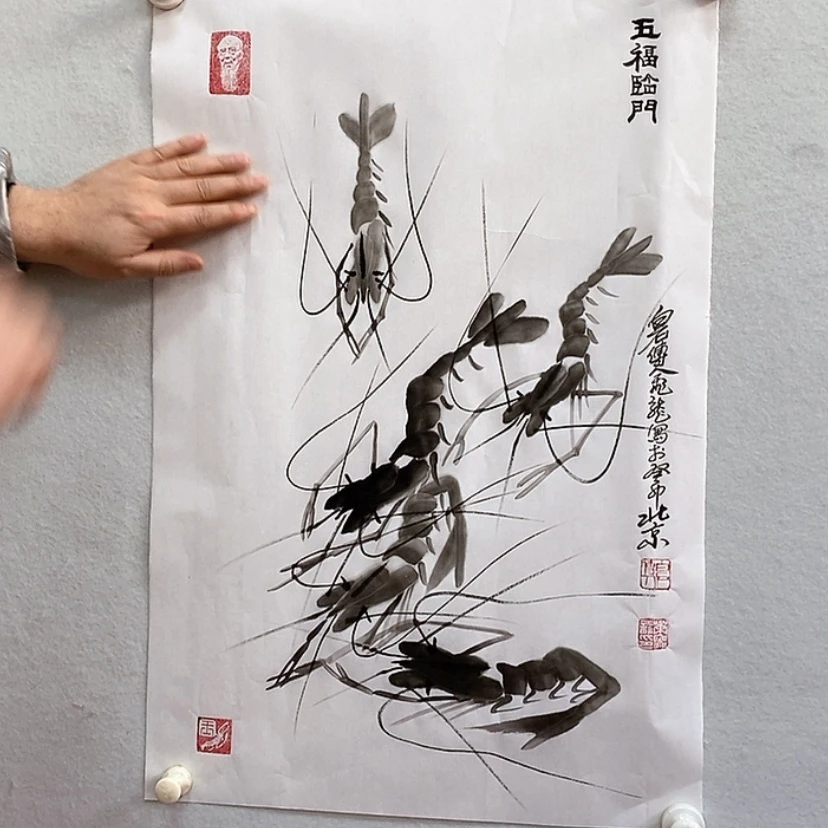 五福臨門
白石傳人飛龍寫於癸卯北京